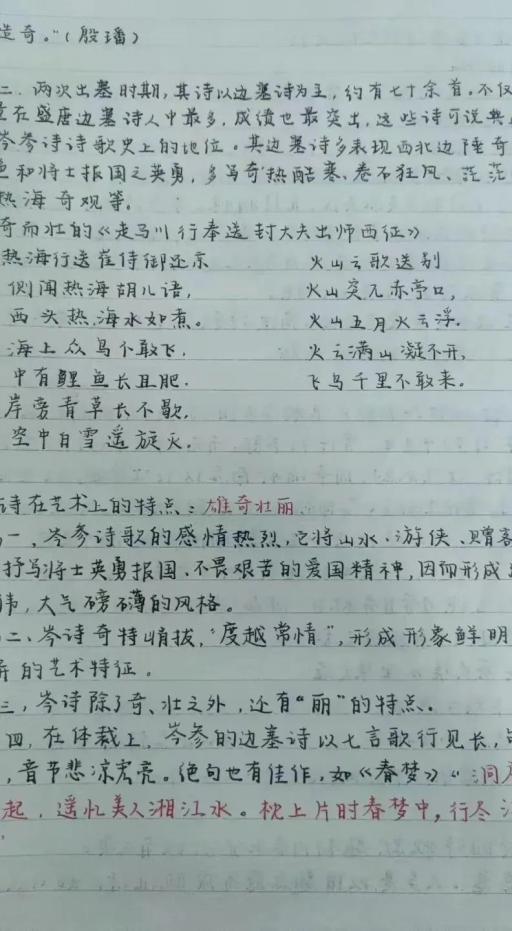 造奇。"(殷璠)
二、两次出塞时期,其诗以边塞诗为主,约有七十余首,不仅
在盛唐边塞诗人中最多,成绩也最突出,这些诗可说
岑参诗诗歌史上的地位。其边塞诗多表现西北边陲奇
和将士报国之英勇,多写奇热酷寒、卷石狂风、茫茫
热海奇观等。
奇而壮的《走马川行奉送封大夫出师西征》
热海行送崔侍御还京
侧闻热海胡儿语,
西头热海水如煮。
海上众鸟不敢飞,
中有鲤鱼长且肥。
岸旁青草长不歇,
空中白雪遥旋灭。
火山云歌送别
火山突兀赤亭口,
火山五月火云浮.
火云满山凝不开,
飞鸟千里不敢来。
诗在艺术上的特点:雄奇壮丽
一、岑参诗歌的感情热烈,它将山水、游侠、赠答
抒写将士英勇报国、不畏艰苦的爱国精神,因而形成
大气磅礴的风格。
二、岑诗奇特峭拔,"度越常情",形成形象鲜明
的艺术特征。
三、岑诗除了奇、壮之外,还有"丽"的特点。
四、在体裁上,岑参的边塞诗以七言歌行见长,
,音节悲凉宏亮。绝句也有佳作,如《春梦》"洞
起,遥忆美人湘江水。枕上片时春梦中,行尽